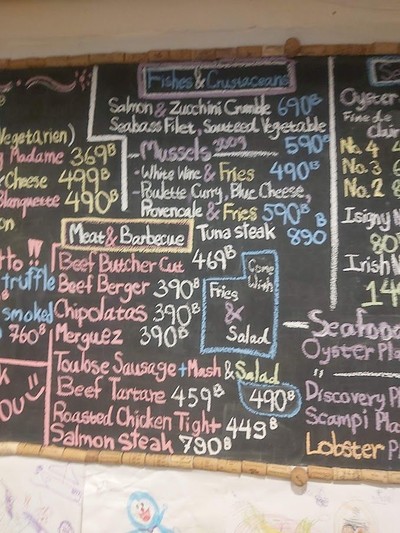 Fishes & Crustaceans
Salmon & Zucchini Crumble 690฿
Seabass Filet, Sauteed Vegetable 590฿
Mussels
- White Wine & Fries 490฿
- Poulette Curry, Blue Cheese,
Provencale & Fries 590฿
Tuna steak 890฿
Meat & Barbecue
Beef Butcher Cut 469฿
Beef Berger 390฿
Chipolatas 390฿
Merguez 390฿
Come
With
Fries
&
Salad
Toulose Sausage + Mash & Salad 490฿
Beef Tartare 459฿
Roasted Chicken Tight 449฿
Salmon Steak 790฿
Vegetarien)
Madame 369฿
Cheese 499฿
Blanquette 490฿
truffle
smoked
760฿
Oyster
Fine de
Clair
No. 4
No. 3
No. 2
Isigny
80
Irish
14
Seafood
Oyster
Discovery
Scampi
Lobster